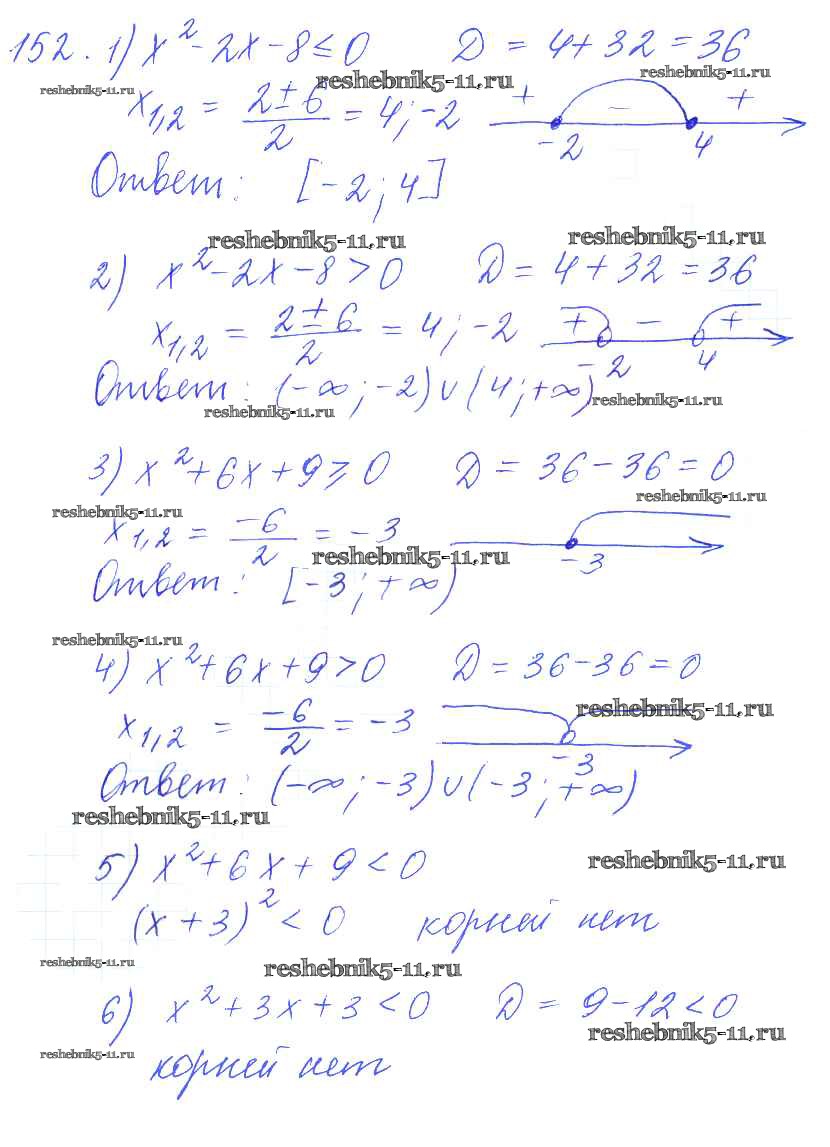 152. 1) x² - 2x - 8 ≤ 0 D = 4 + 32 = 36
reshebnik5-11.ru reshebnik5-11.ru reshebnik5-11.ru
x₁,₂ = (2 ± 6)/2 = 4; -2 + - + -2 4
Ответ: [-2; 4]
reshebnik5-11.ru reshebnik5-11.ru
2) x² - 2x - 8 > 0 D = 4 + 32 = 36
x₁,₂ = (2 ± 6)/2 = 4; -2 + - + -2 4
Ответ: (-∞; -2) ∪ (4; +∞)
reshebnik5-11.ru reshebnik5-11.ru
3) x² + 6x + 9 ≥ 0 D = 36 - 36 = 0
reshebnik5-11.ru reshebnik5-11.ru
x₁,₂ = -6/2 = -3 -3
reshebnik5-11.ru
Ответ: [-3; +∞)
reshebnik5-11.ru
4) x² + 6x + 9 > 0 D = 36 - 36 = 0
reshebnik5-11.ru
x₁,₂ = -6/2 = -3 -3
Ответ: (-∞; -3) ∪ (-3; +∞)
reshebnik5-11.ru
5) x² + 6x + 9 < 0 reshebnik5-11.ru
(x + 3)² < 0 корней нет
reshebnik5-11.ru reshebnik5-11.ru
6) x² + 3x + 3 < 0 D = 9 - 12 < 0
reshebnik5-11.ru
reshebnik5-11.ru
корней нет